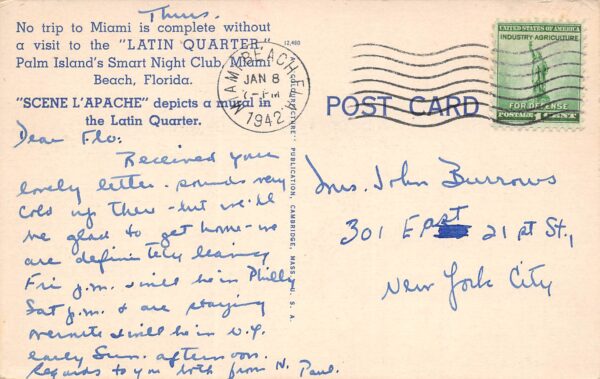 Thurs.
No trip to Miami is complete without
a visit to the "LATIN QUARTER,"
Palm Island's Smart Night Club, Miami
Beach, Florida.
"SCENE L'APACHE" depicts a mural in
the Latin Quarter.
Dear Flo:
Received your
lovely letter - sounds very
cold up there - but we'll
be glad to get home - we
are definitely leaving
Fri p.m. & will be in Philly
Sat p.m. & are staying
overnite & will be in N.Y.
early Sun. afternoon.
Regards to you both from N. Paul.
12,460
"COLOURPICTURE" PUBLICATION, CAMBRIDGE, MASS., U. S. A.
MIAMI BEACH, FLA.
JAN 8
7-PM
1942
UNITED STATES OF AMERICA
INDUSTRY AGRICULTURE
FOR DEFENSE
POSTAGE 1 CENT
POST CARD
Mrs. John Burrows
301 East 21st St.,
New York City